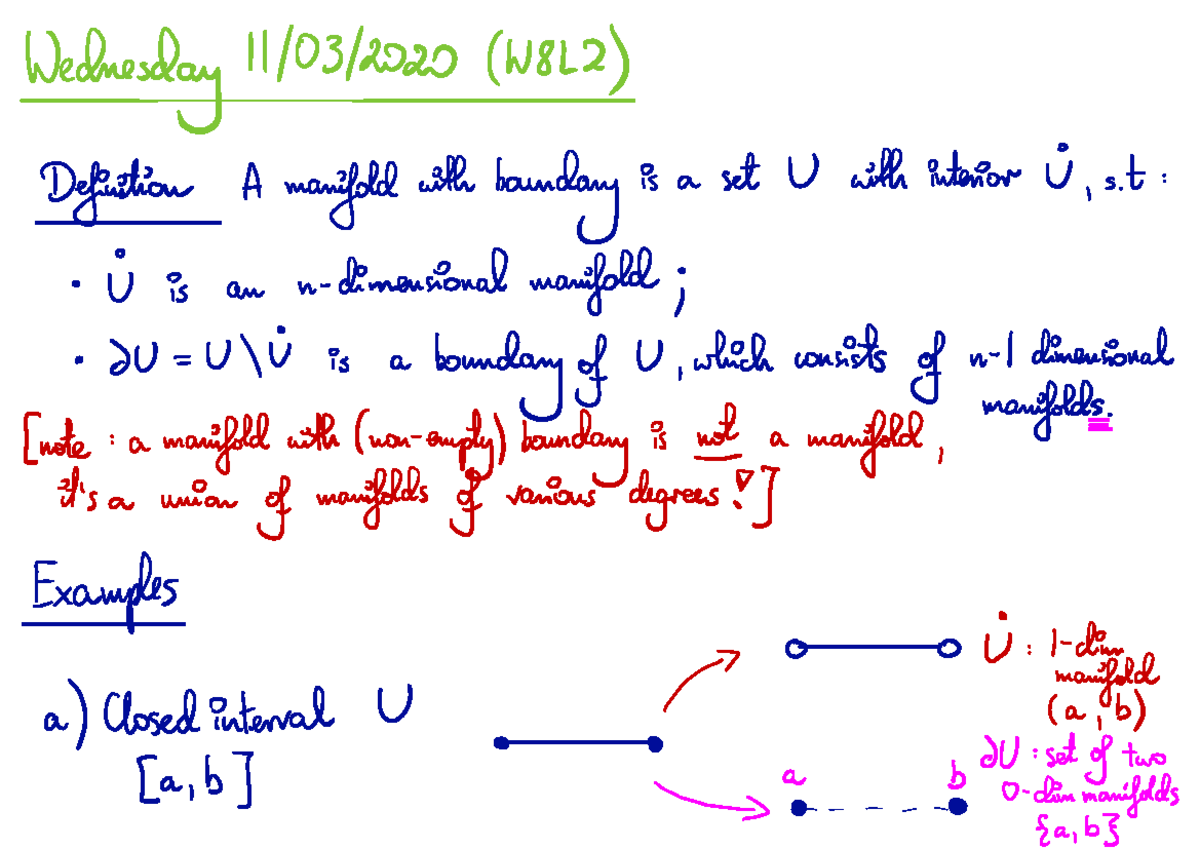 Wednesday 11/03/2020 (W8L2)
Definition A manifold with boundary is a set U with interior U̇, s.t:
• U̇ is an n-dimensional manifold;
• ∂U = U \ U̇ is a boundary of U, which consists of n-1 dimensional
manifolds.
[note : a manifold with (non-empty) boundary is not a manifold,
it's a union of manifolds of various degrees!]
Examples
a) Closed interval U
[a, b]
U̇ : 1-dim
manifold
(a, b)
a b
∂U : set of two
0-dim manifolds
{a, b}